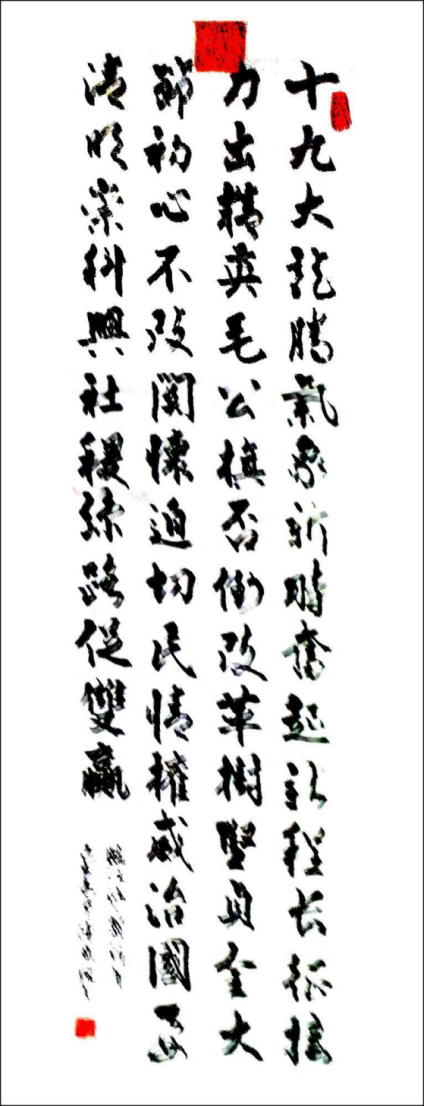 十九大龍騰氣象新時奮起新程长征接
力出精英毛公旗否倒改革樹堅貞全大
節初心不改関懷迫切民情權威治國要
清明崇科興社稷絲路促雙贏